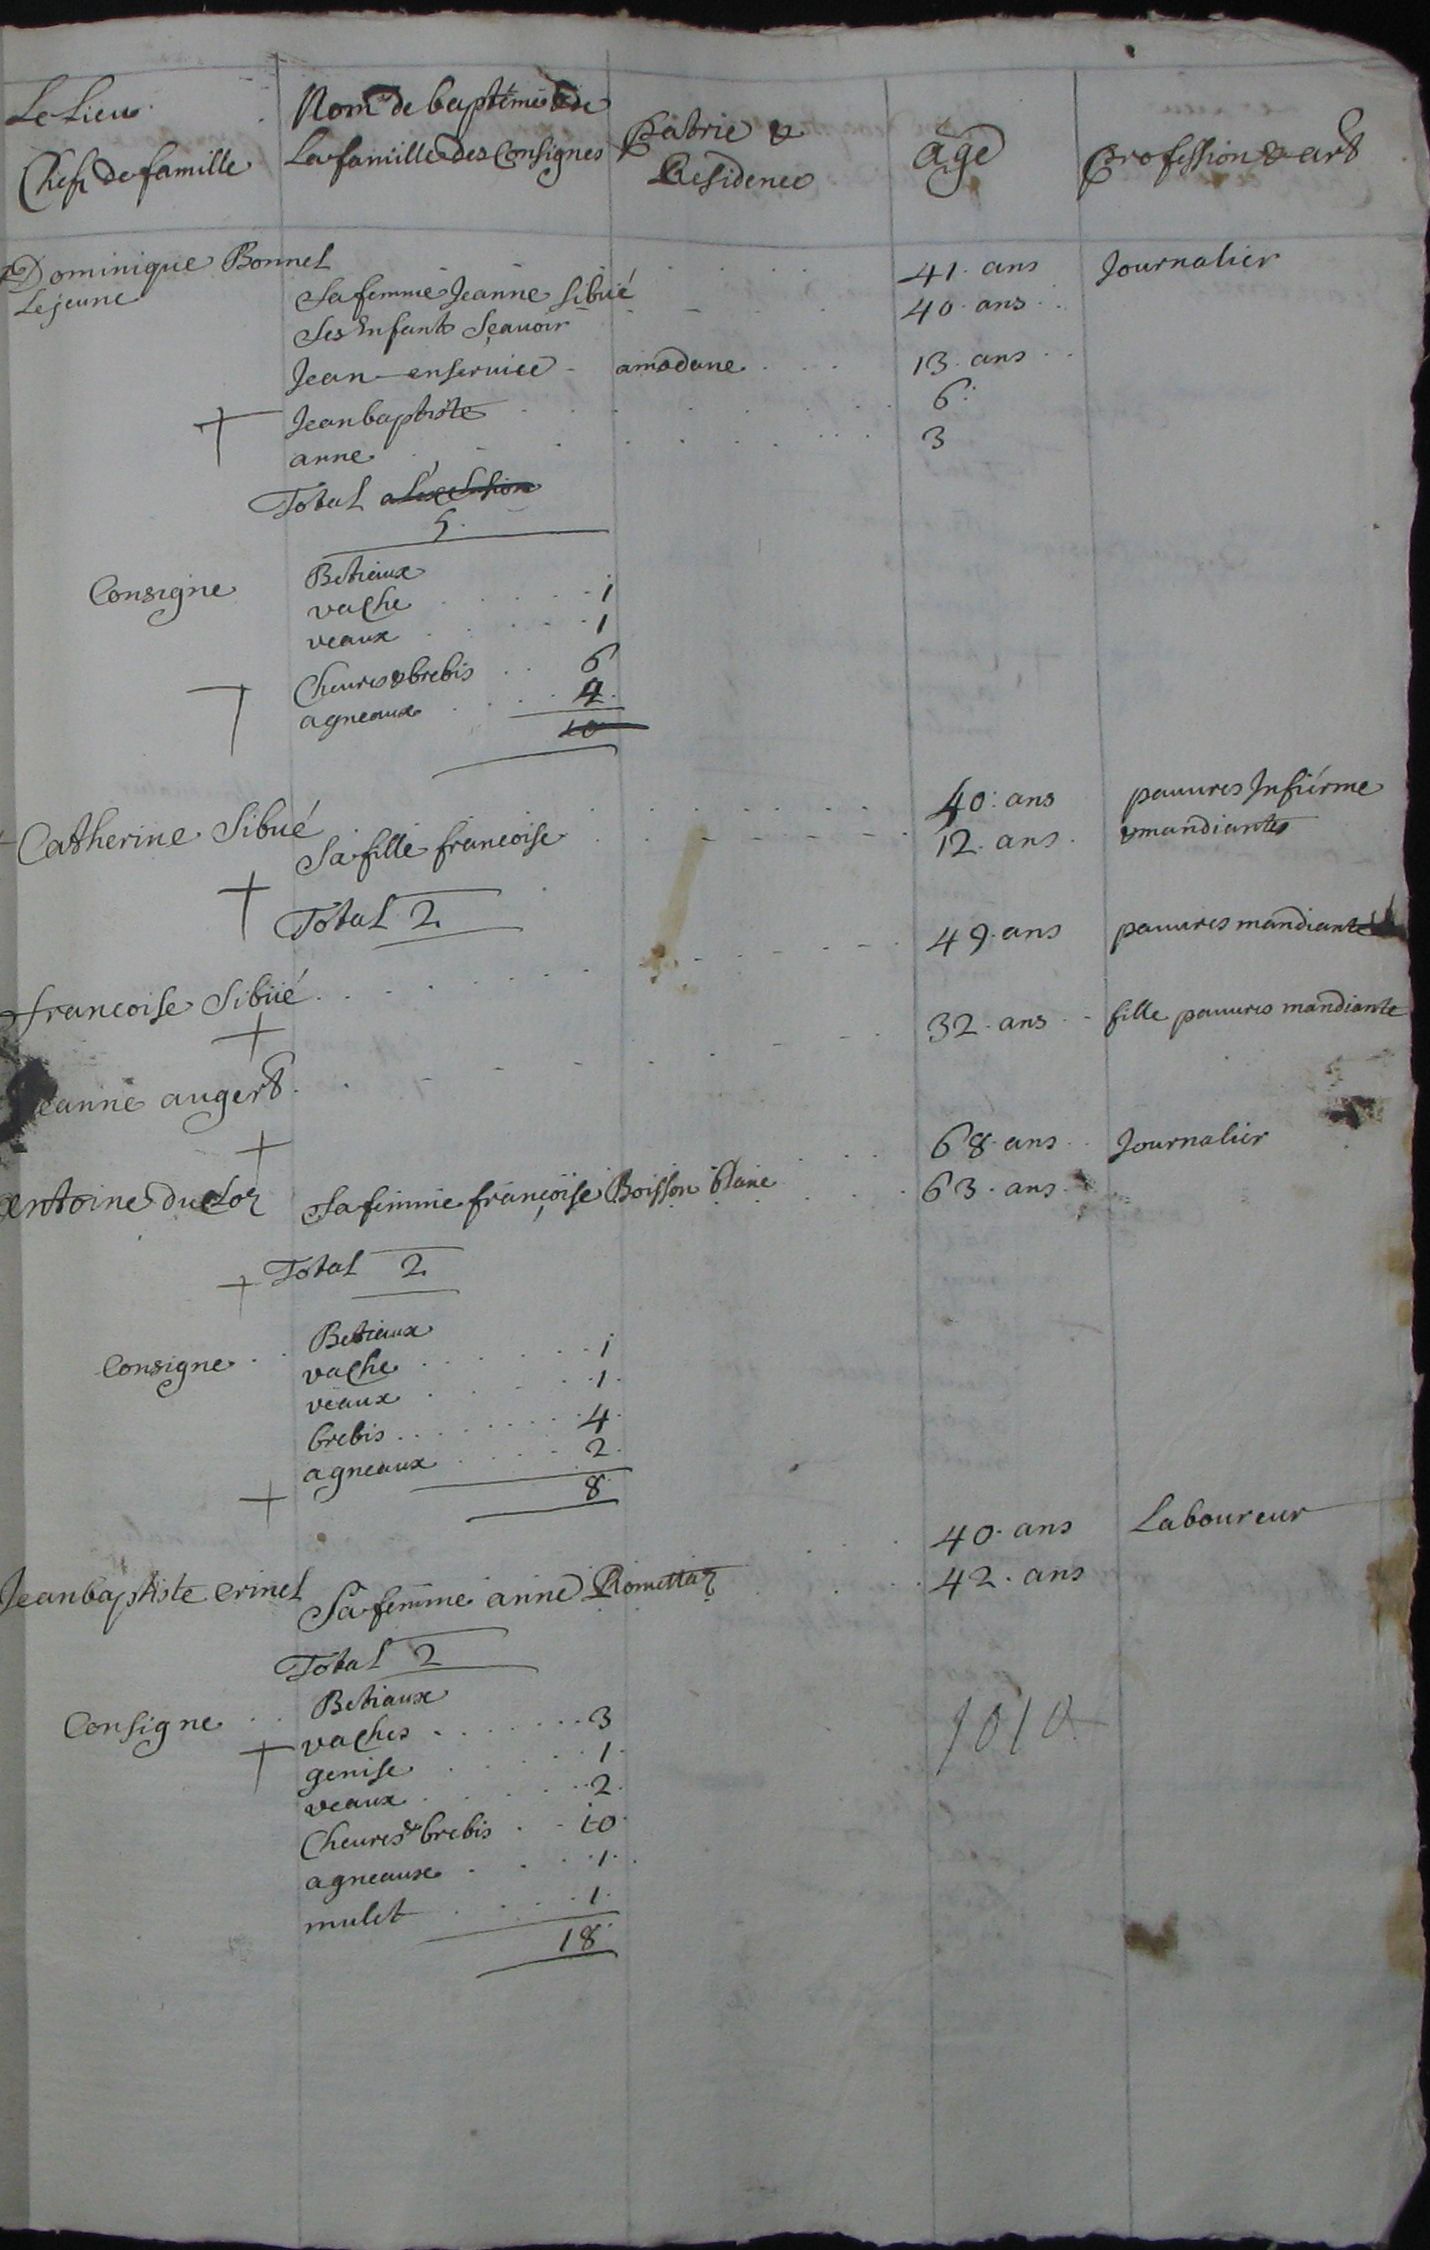 Le Lieu Nom de baptêmes & de
Chefs de famille La famille des Consignés Patrie & Residence age profession & art
Dominique Bonnel 41. ans Journalier
Le jeune Sa femme Jeanne Sibué 40. ans
Ses Enfants Sçavoir
Jean en service amodane 13. ans
Jean baptiste 6.
anne 3
Total
5.
Consigne Betiaux
vache 1
veaux 1
Cheures & brebis 6
agneaux 4
10
Catherine Sibué 40. ans pauures Infirme
Sa fille francoise 12. ans & mandiantes
Total 2
francoise Sibüé 49. ans pauures mandiante
Jeanne augert 32. ans fille pauures mandiante
antoine du cloz 68. ans Journalier
Sa femme françoise Boisson blanc 63. ans
Total 2
Consigne Betiaux
vache 1
veaux 1
brebis 4
agneaux 2
8
Jean baptiste crinel 40. ans Laboureur
Sa femme anne Romettaz 42. ans
Total 2
Consigne Betiaux
vaches 3
genise 1
veaux 2
Cheures & brebis 10
agneaux 1
mulet 1
18